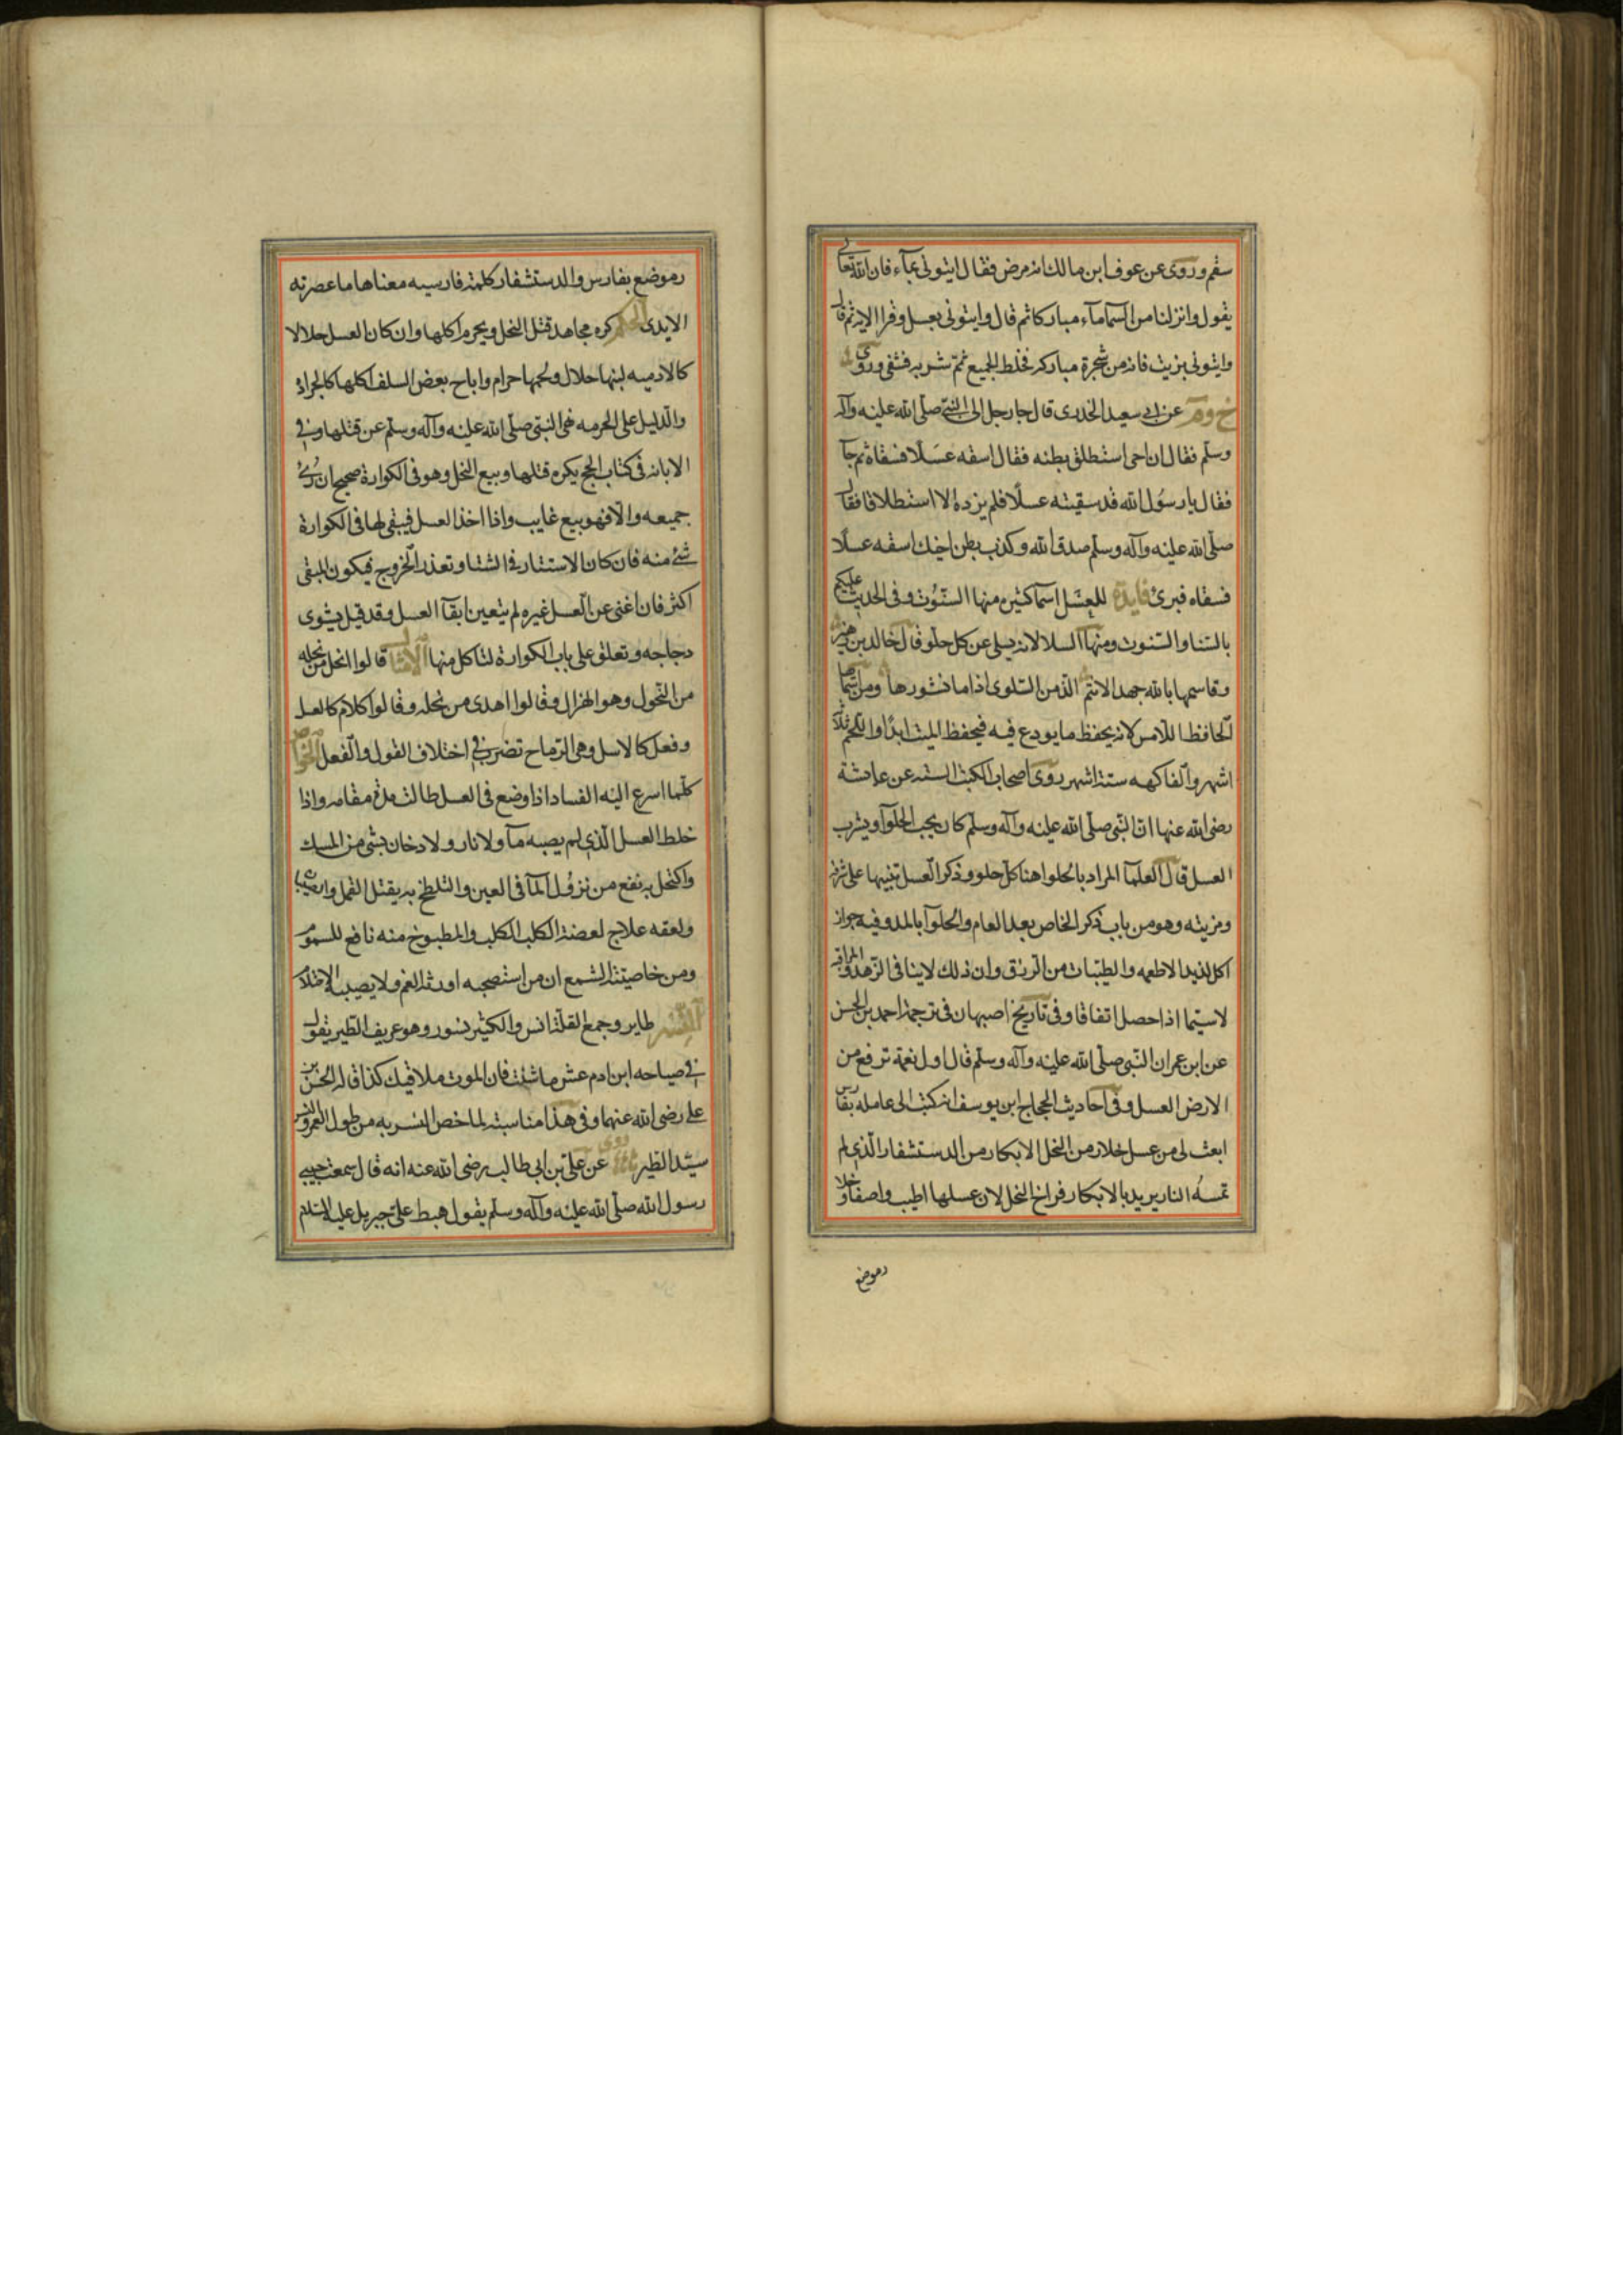 سقم وروى عن عوف ابن مالك انه مرض فقال ايتونى بمآء فان الله تعالى
يقول وانزلنا من السمآء مآء مباركا ثم قال وايتونى بعسل وقرا الاية ثم قال
وايتونى بزيت فانه من شجرة مباركه فخلط الجميع ثم شربه فشفى وروى
خ وم عن ابى سعيد الخدرى قال جا رجل الى النبى صلى الله عليه وآله
وسلم فقال ان اخى استطلق بطنه فقال اسقه عسلا فسقاه ثم جآ
فقال يا رسول الله قد سقيته عسلا فلم يزده الا استطلاقا فقال
صلى الله عليه وآله وسلم صدق الله وكذب بطن اخيك اسقه عسلا
فسقاه فبرئ فايدة للعسل اسما كثيره منها السنوت وفى الحديث عليكم
بالسنا والسنوت ومنها السلا لانه يسلى عن كل حلو قال خالد بن زهير
وقاسمها بالله جهدا لانتم الذ من السلوى اذا ما نشورها ومن اسمآ
الحافظ الامين لانه يحفظ ما يودع فيه فيحفظ الميت ابدًا واللحم ثلاثة
اشهر والفاكهه ستة اشهر روى اصحاب الكتب السته عن عائشة
رضى الله عنها ان النبى صلى الله عليه وآله وسلم كان يحب الحلوآ ويشرب
العسل قال العلمآ المراد بالحلوا هنا كل حلو وذكر العسل تنبيها على شرفه
ومزيته وهو من باب ذكر الخاص بعد العام والحلوآ بالمد وفيه جواز
اكل لذيذ الاطعمه والطيبات من الرزق وان ذلك لا ينافى الزهد والمراقبه
لاسيما اذا حصل اتفاقا وفى تاريخ اصبهان فى ترجمة احمد بن الحسن
عن ابن عمر ان النبى صلى الله عليه وآله وسلم قال اول نعمة ترفع من
الارض العسل وفى احاديث الحجاج ابن يوسف انه كتب الى عامله بفارس
ابعث لى من عسل خلار من النحل الابكار من الدستشفار الذى لم
تمسه النار يريد بالابكار فراخ النحل لان عسلها اطيب واصفا وخلا
رموضع
رموضع بفارس والدستشفار كلمة فارسيه معناها ما عصرته
الايدى الحكم كره مجاهد قتل النحل ويحرم اكلها وان كان العسل حلالا
كالادميه لبنها حلال ولحمها حرام واباح بعض السلف اكلها كالجراد
والدليل على الحرمه نهى النبى صلى الله عليه وآله وسلم عن قتلها وفى
الابانه فى كتاب الحج يكره قتلها وبيع النحل وهو فى الكوارة صحيح ان رُئى
جميعه والا فهو بيع غايب واذا اخذ العسل فيبقى لها فى الكوارة
شئ منه فان كان الاستتار فى الشتا وتعذر الخروج فيكون المبقى
اكثر فان اغنى عن العسل غيره لم يتعين ابقآ العسل وقد قيل يشوى
دجاجه وتعلق على باب الكوارة لتاكل منها الامثال قالوا انحل من نحله
من النحول وهو الهزال وقالوا اهدى من نحله وقالوا كلام كالعسل
وفعل كالاسل وهى الرماح تضرب فى اختلاف القول والفعل الخواص
كلما اسرع اليه الفساد اذا وضع فى العسل طالت مدة مقامه واذا
خلط العسل الذى لم يصبه مآ ولا نار ولا دخان بشئ من المسك
واكتحل به نفع من نزول المآ فى العين والتلطخ به يقتل القمل
ولعقه علاج لعضة الكلب الكلب والمطبوخ منه نافع للسموم
ومن خاصية الشمع ان من استصحبه اورثه الغم ولا يصيبه الاحتلام
النسر طاير وجمع القلة انسر والكثير نسور وهو عريف الطير يقول
فى صياحه ابن ادم عش ما شئت فان الموت ملاقيك كذا قاله الحسن بن
على رضى الله عنهما وفى هذا مناسبة لما خص النسر به من طول العمر والنسر
سيد الطير روى عن على بن ابى طالب رضى الله عنه انه قال سمعت حبيبى
رسول الله صلى الله عليه وآله وسلم يقول هبط على جبريل عليه السلام